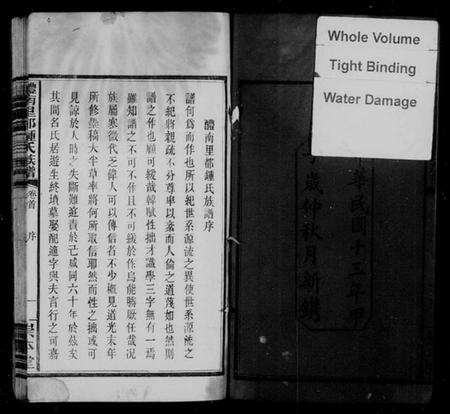 Whole Volume
Tight Binding
Water Damage
醴南里都鍾氏族譜序
譜何爲而作也所以紀世系源流之異使世系源流之
不紀將親疏不分尊卑以紊而人倫之道蔑如也然則
譜之作也顧可緩哉韓賦性拙才識學三字無有一焉
雖知譜之不可不作且不可緩於作烏能勝厥任哉况
族屬寒微代乏偉人可以傳信者不少概見道光末年
所修墊稿大半草率將何所取信耶然而性之拙或可
見諒於人時之失斷難逭責於己咸同六十年於茲矣
其間名氏居遊生終墳墓娶配適字與夫言行之可嘉
醴南里都鍾氏族譜
卷首
序
一
歲仲秋月新鐫